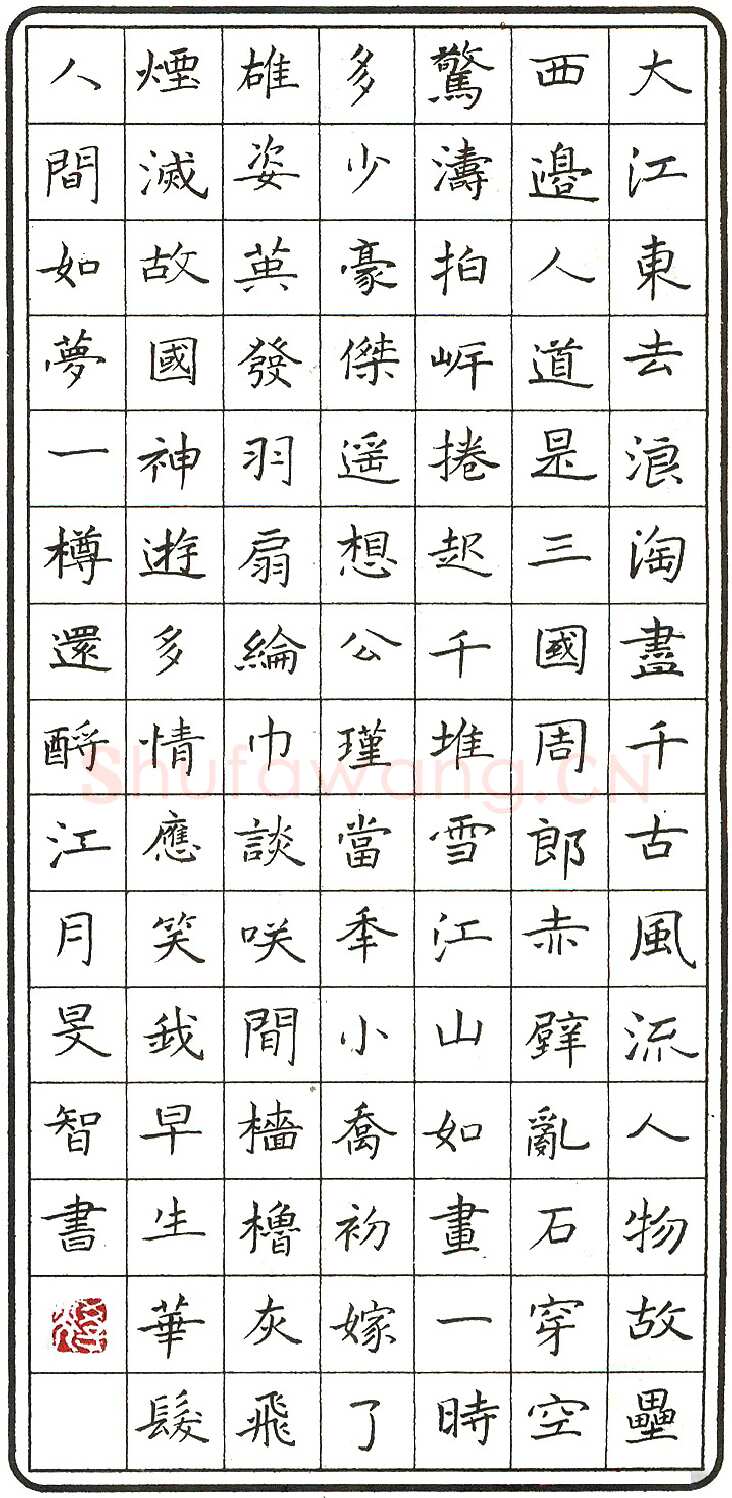 大江東去浪淘盡千古風流人物故壘
西邊人道是三國周郎赤壁亂石穿空
驚濤拍岸捲起千堆雪江山如畫一時
多少豪傑遥想公瑾當年小喬初嫁了
雄姿英發羽扇綸巾談咲間檣櫓灰飛
煙滅故國神遊多情應笑我早生華髮
人間如夢一樽還酹江月旻智書
Shufawang.CN